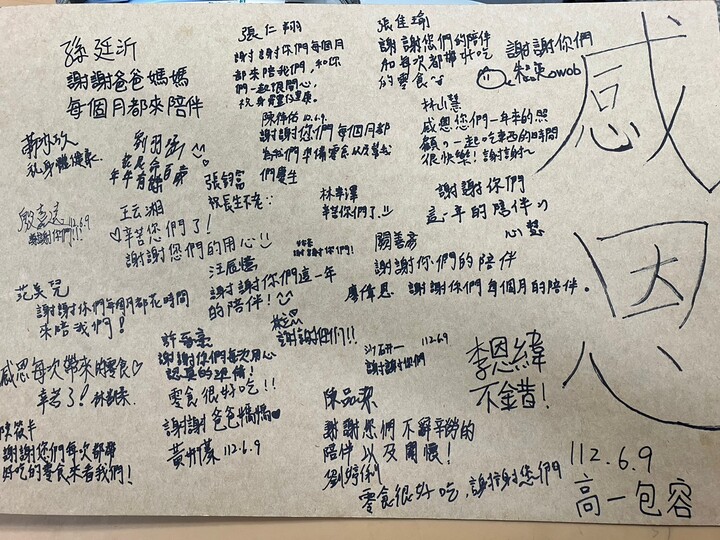 孫廷沂
謝謝爸爸媽媽
每個月都來陪伴
張仁翔
謝謝你們每個月
都來陪我們,和你
們一起很開心,
祝身體健康。
張佳瑜
謝謝您們的陪伴
和每次都帶好吃
的零食~
謝謝你們
陳伴佑 112.6.9
謝謝你們每個月都
為我們準備零食以及幫我
們慶生
林小慧
感恩您們一年來的照
顧。一起吃東西的時間
很快樂!謝謝~
祝身體健康
年年有
張鈞富
祝長生不老
林聿澤
辛苦你們了!!
謝謝你們
這一年的陪伴
心慧
殷嘉遠
謝謝你們! 112.6.9
王云湘
♡辛苦您們了!
謝謝您們的用心
謝謝你們!
汪辰憶
謝謝你們這一年
的陪伴!
關善彥
謝謝你們的陪伴
廖偉恩 謝謝你們每個月的陪伴。
范美兒
謝謝你們每個月都花時間
來陪我們!
謝謝你們!!
許
謝謝你們每次用心
認真的準備!
零食很好吃!!
112.6.9
謝謝你們
李恩緯
不錯!
感恩每次帶來的零食♡
辛苦了!
謝謝爸媽媽
112.6.9
陳品潔
謝謝您們不辭辛勞的
陪伴以及關懷!
陳筱半
謝謝您們每次都帶
好吃的零食來看我們!
零食很好吃,謝謝您們
感恩
112.6.9
高一包容